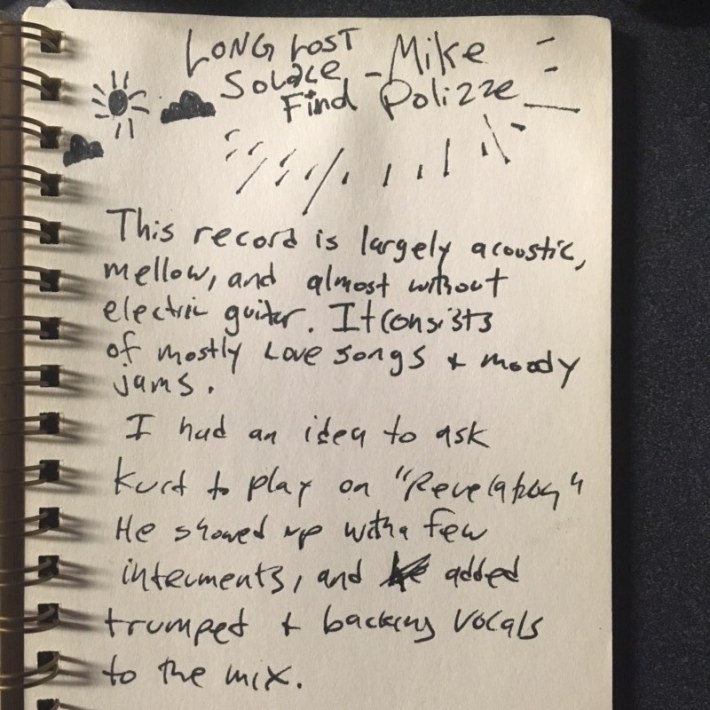 LONG LOST
SOLACE
FIND
- Mike
Polizze
This record is largely acoustic,
mellow, and almost without
electric guitar. It consists
of mostly Love songs + moody
jams.
I had an idea to ask
Kurt to play on "Revelation"
He showed up with a few
interments, and added
trumpet + backing vocals
to the mix.